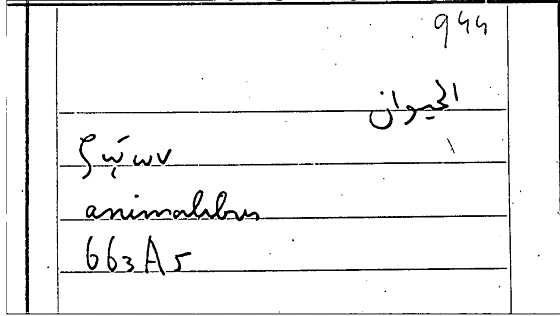 944
الحيوان
ζῴων
animalibus
663A5